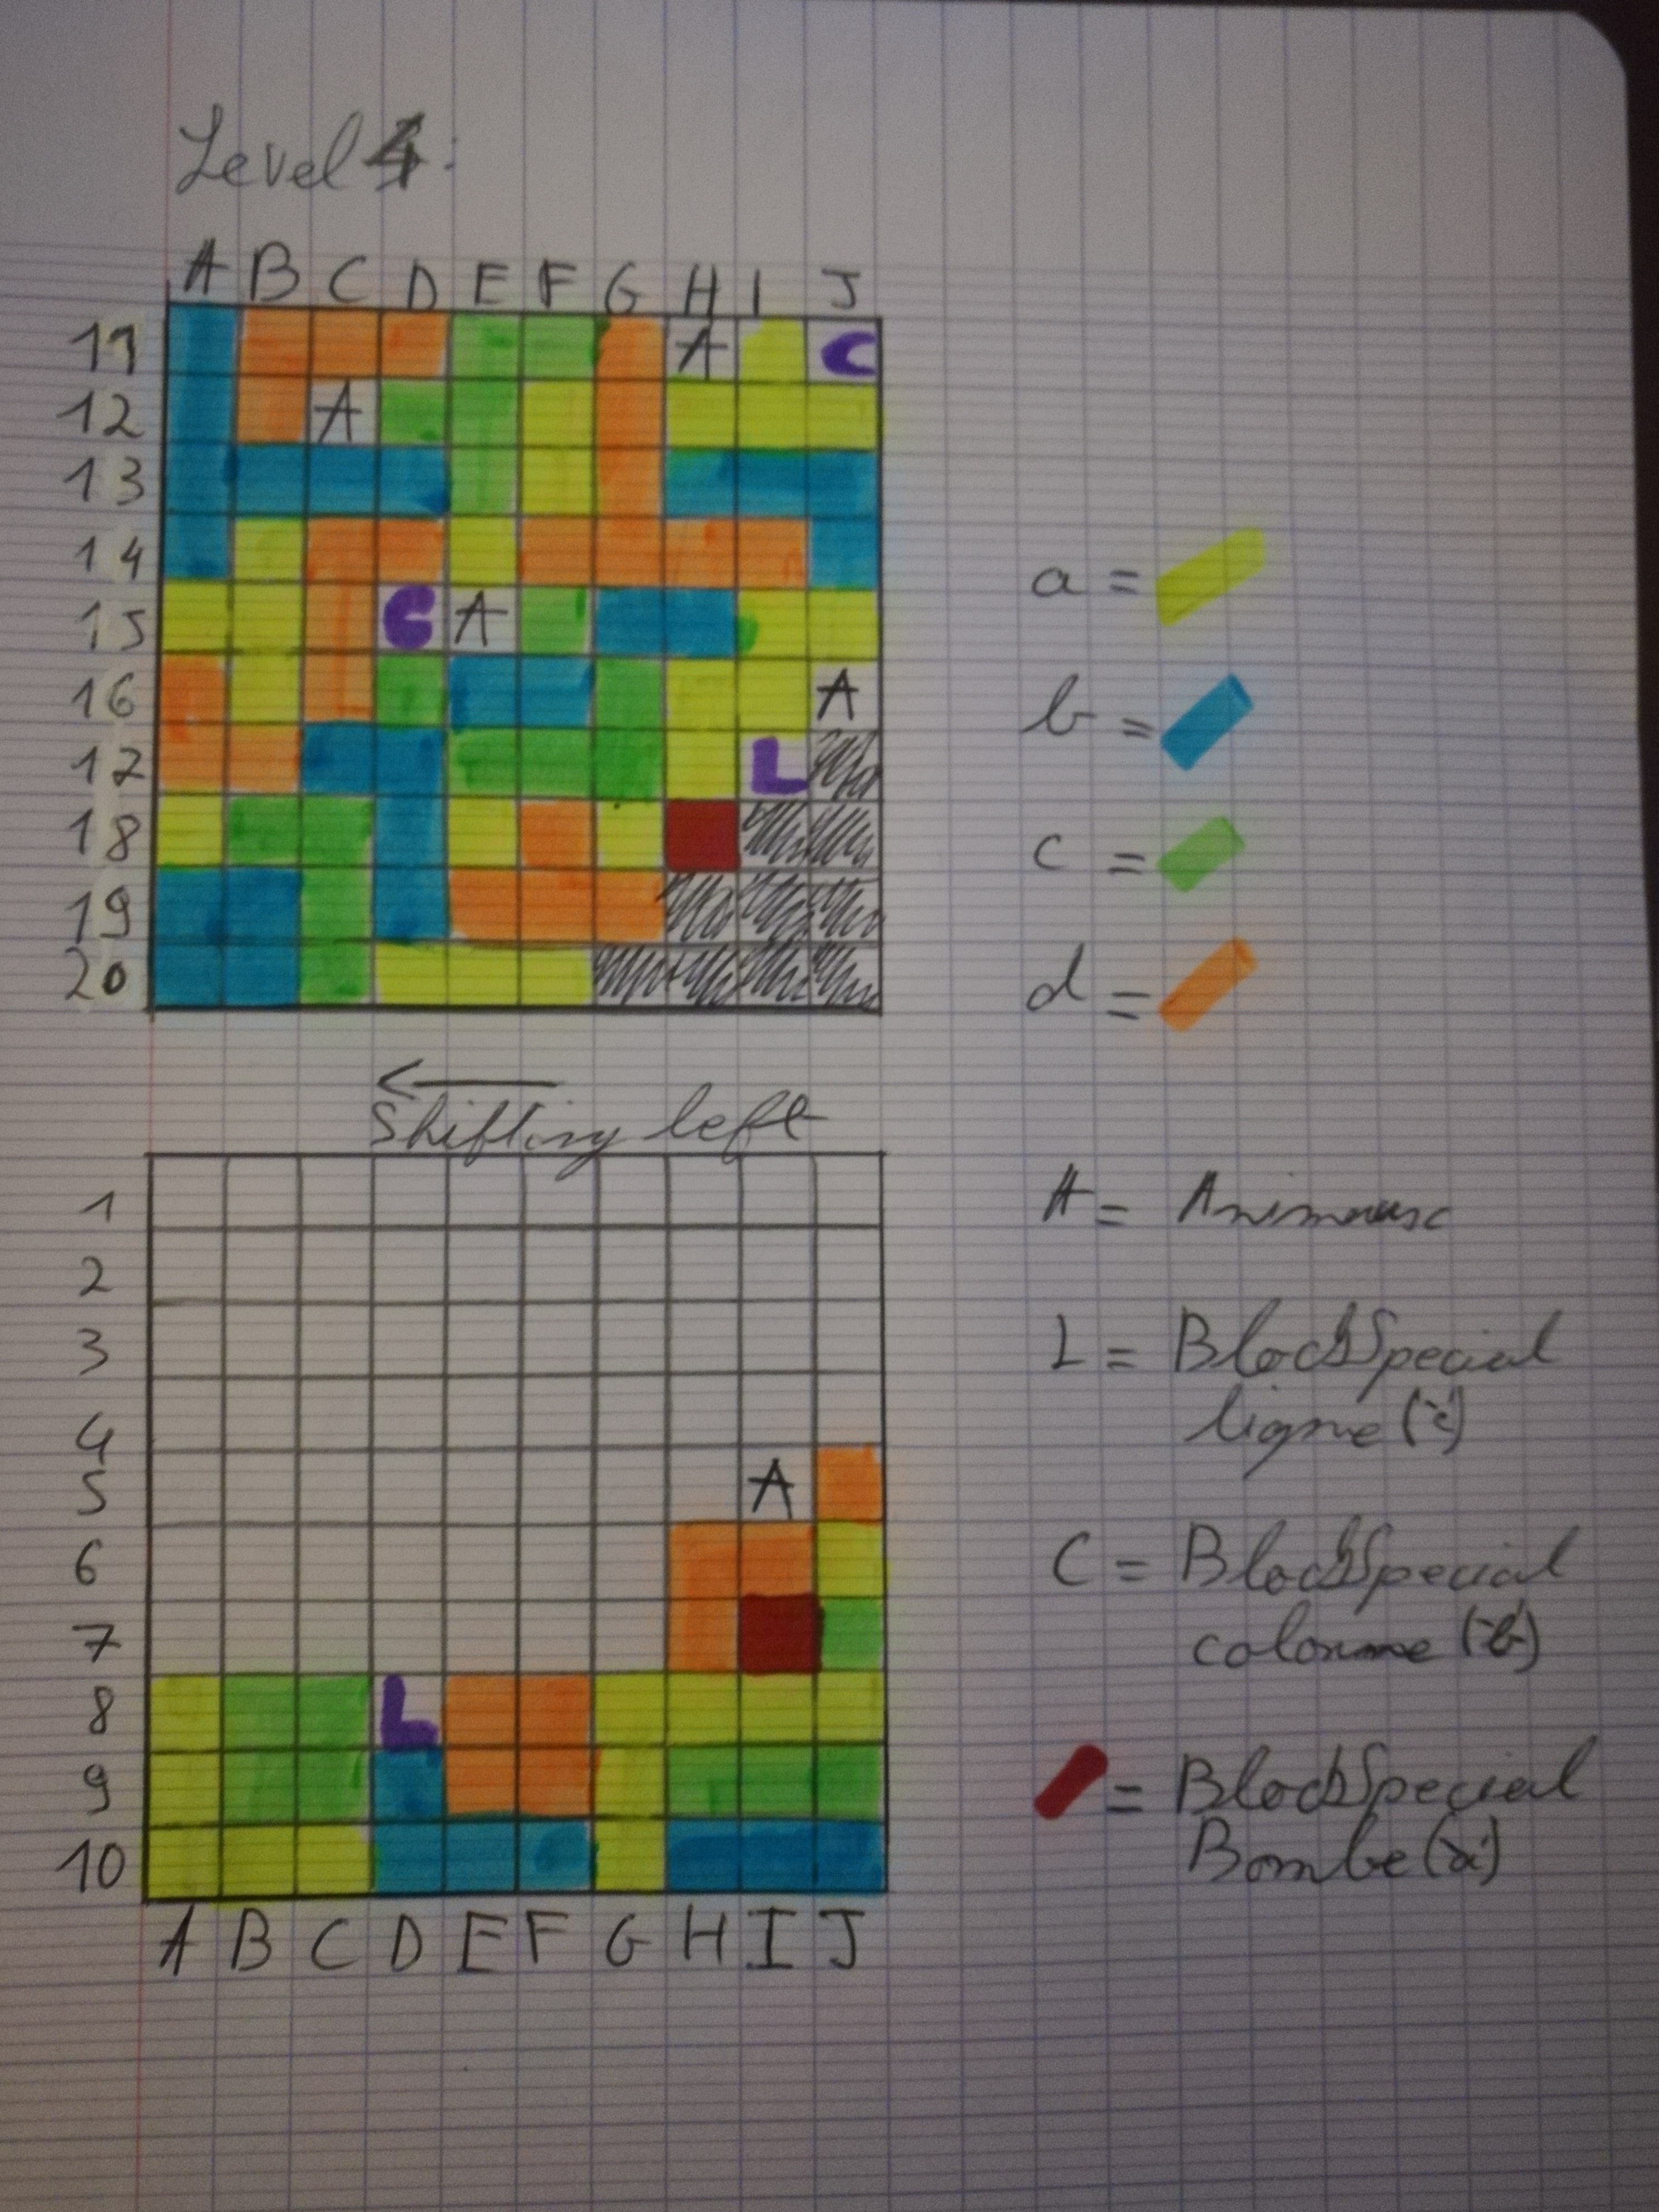 Level 4:
A B C D E F G H I J
11 A C
12 A
13
14
15 C A
16 A
12 L
18
19
20
a =
b =
c =
d =
Shifting left
1
2
3
4
5 A
6
7
8 L
9
10
A B C D E F G H I J
A = Animaux
L = BlockSpecial
ligne
C = BlockSpecial
colonne
= BlockSpecial
Bombe